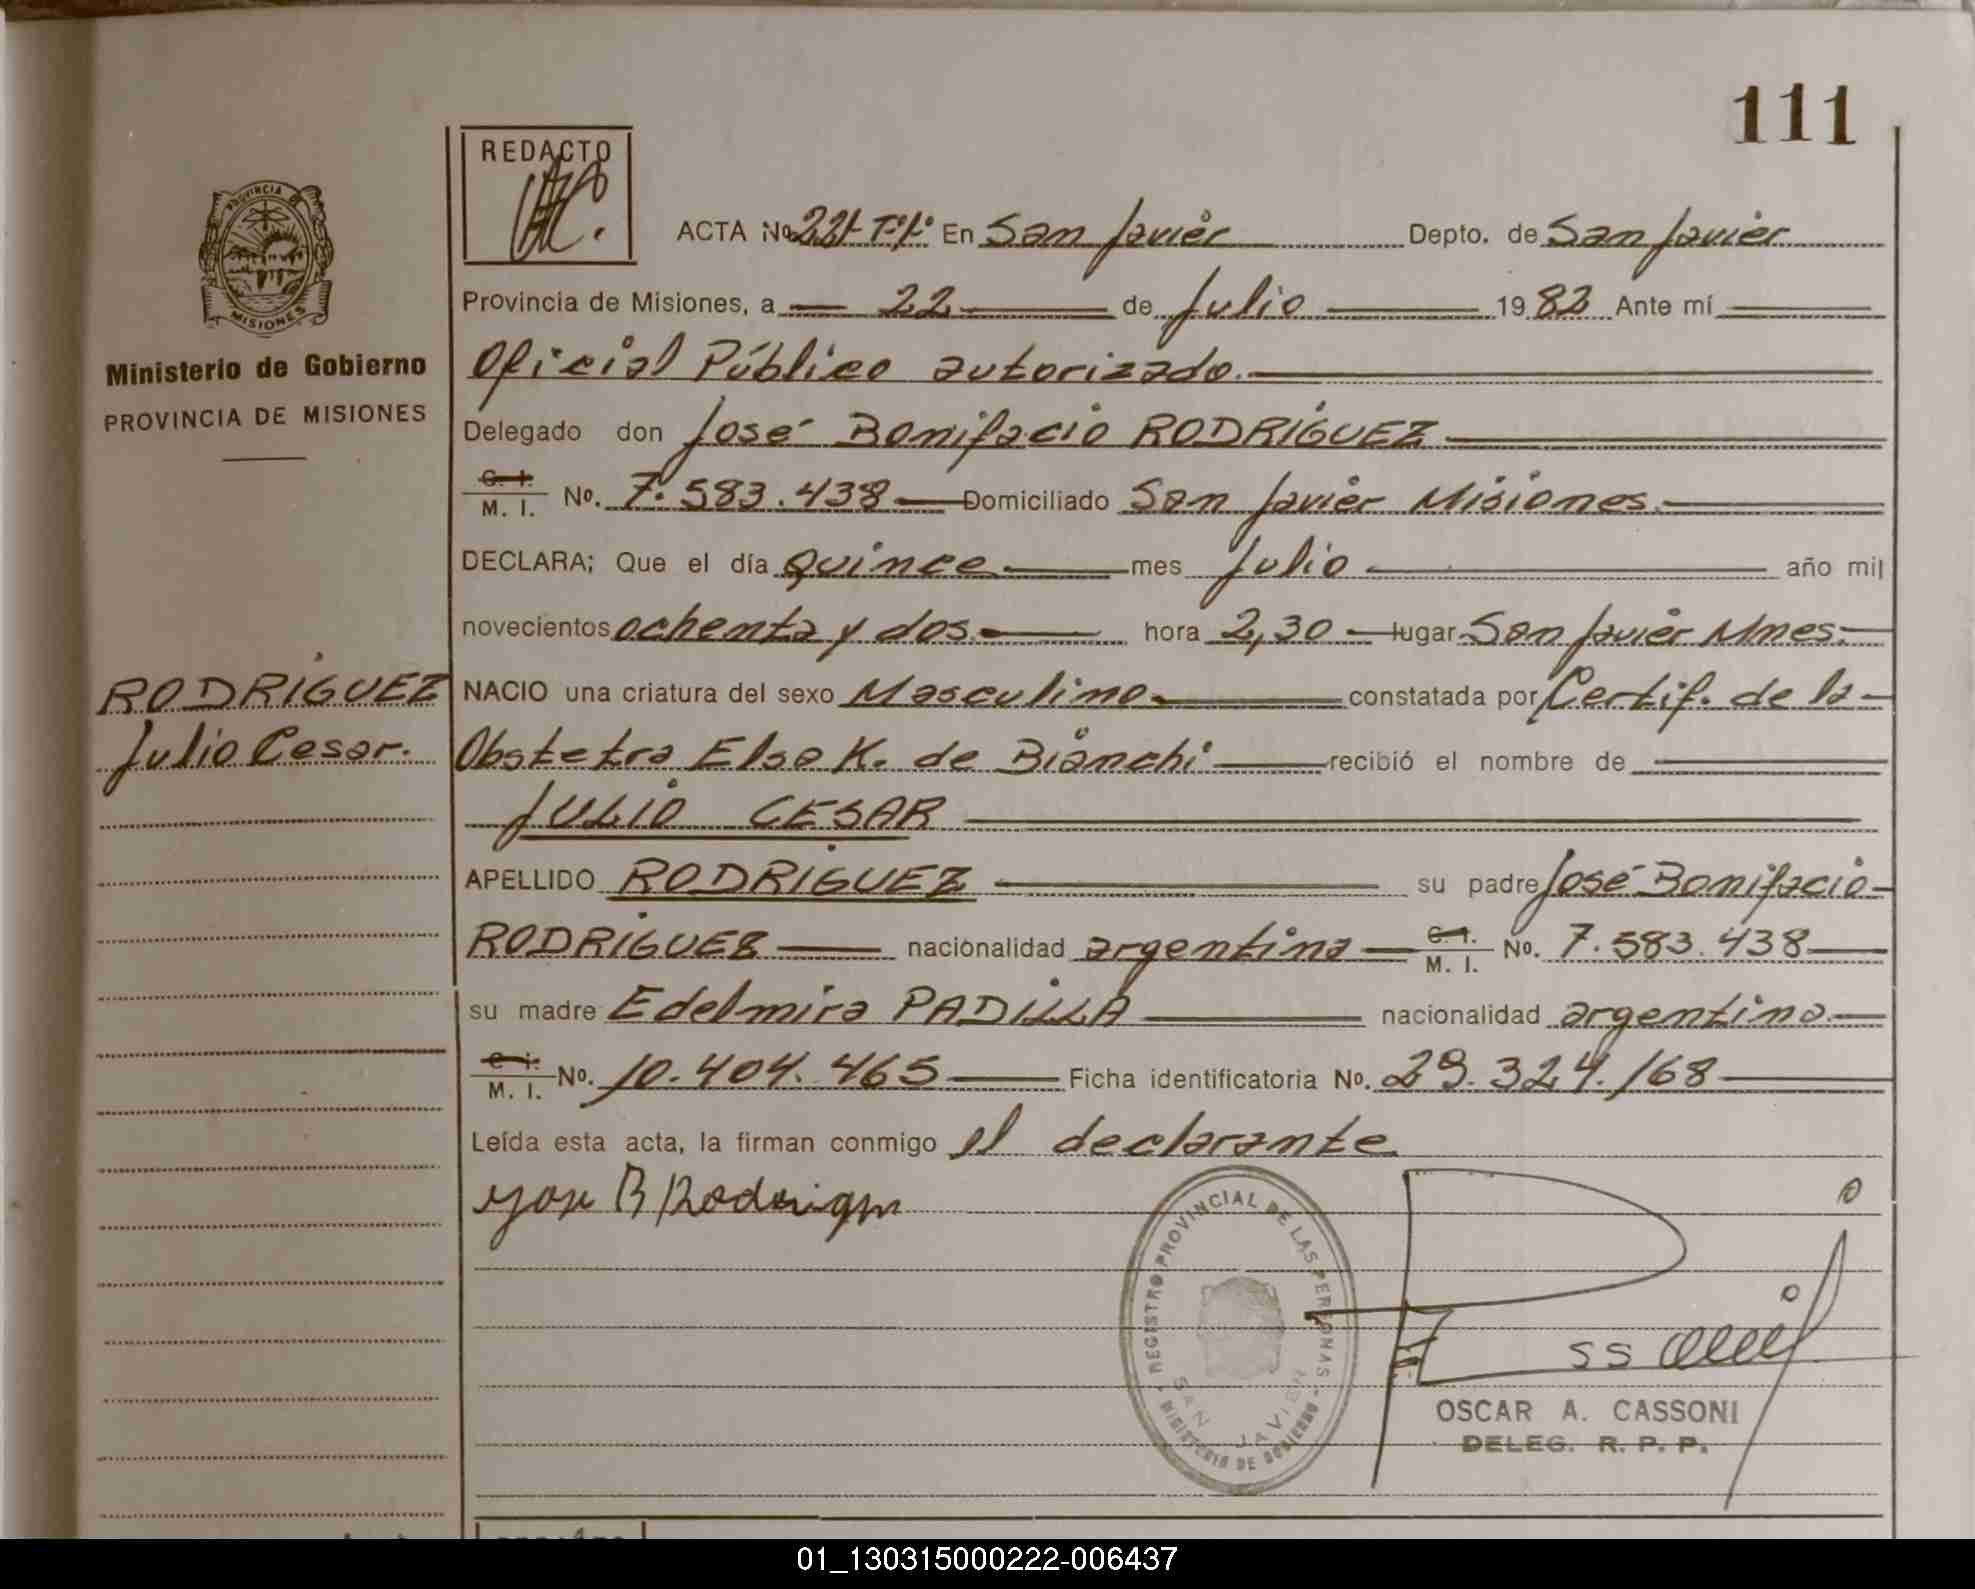 111
REDACTO
PROVINCIA
MISIONES
Ministerio de Gobierno
PROVINCIA DE MISIONES
ACTA No 221-Tº1º En San Javier Depto. de San Javier
Provincia de Misiones, a 22 de Julio 1982 Ante mí
Oficial Público autorizado.
Delegado don José Bonifacio RODRIGUEZ
C. I.
M. I. No. 7.583.438 Domiciliado San Javier Misiones.
DECLARA; Que el día quince mes Julio año mil
novecientos ochenta y dos. hora 2,30 lugar San Javier Mnes.
RODRIGUEZ
Julio Cesar.
NACIO una criatura del sexo Masculino. constatada por Certif. de la
Obstetra Elsa K. de Bianchi recibió el nombre de
JULIO CESAR
APELLIDO RODRIGUEZ su padre José Bonifacio
RODRIGUEZ nacionalidad argentina C. I. M. I. No. 7.583.438
su madre Edelmira PADILLA nacionalidad argentina.
C. I.
M. I. No. 10.404.465 Ficha identificatoria No. 29.324.168
Leída esta acta, la firman conmigo el declarante
Jose B Rodrigue
REGISTRO PROVINCIAL DE LAS PERSONAS
SAN JAVIER
MINISTERIO DE GOBIERNO
OSCAR A. CASSONI
DELEG. R. P. P.
01_130315000222-006437